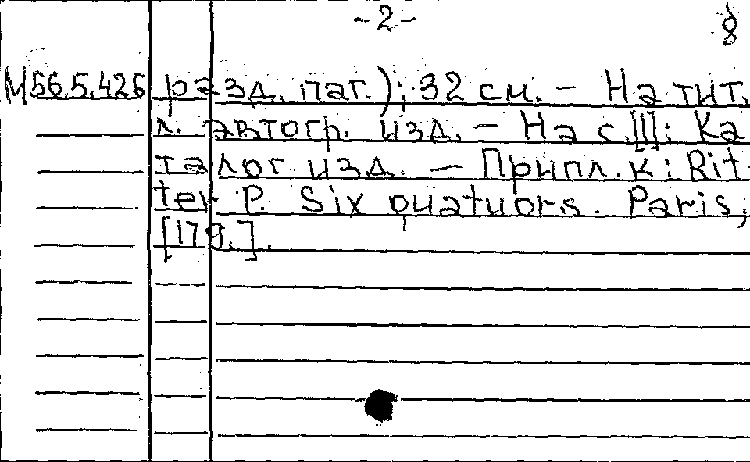 -2-
8
М56.5.426 разд. паг.); 32 см. – На тит.
л. автогр. изд. – На с.[I]: Ка
талог изд. – Припл. к: Rit-
ter P. Six quatuors. Paris,
[179.].